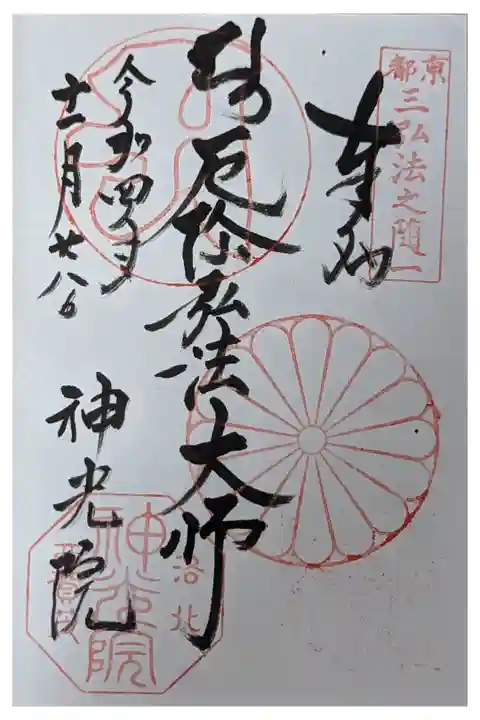 京都
三弘法之随一
奉拝
厄除弘法大師
令和四年
十二月廿八日
神光院
洛北
神光院